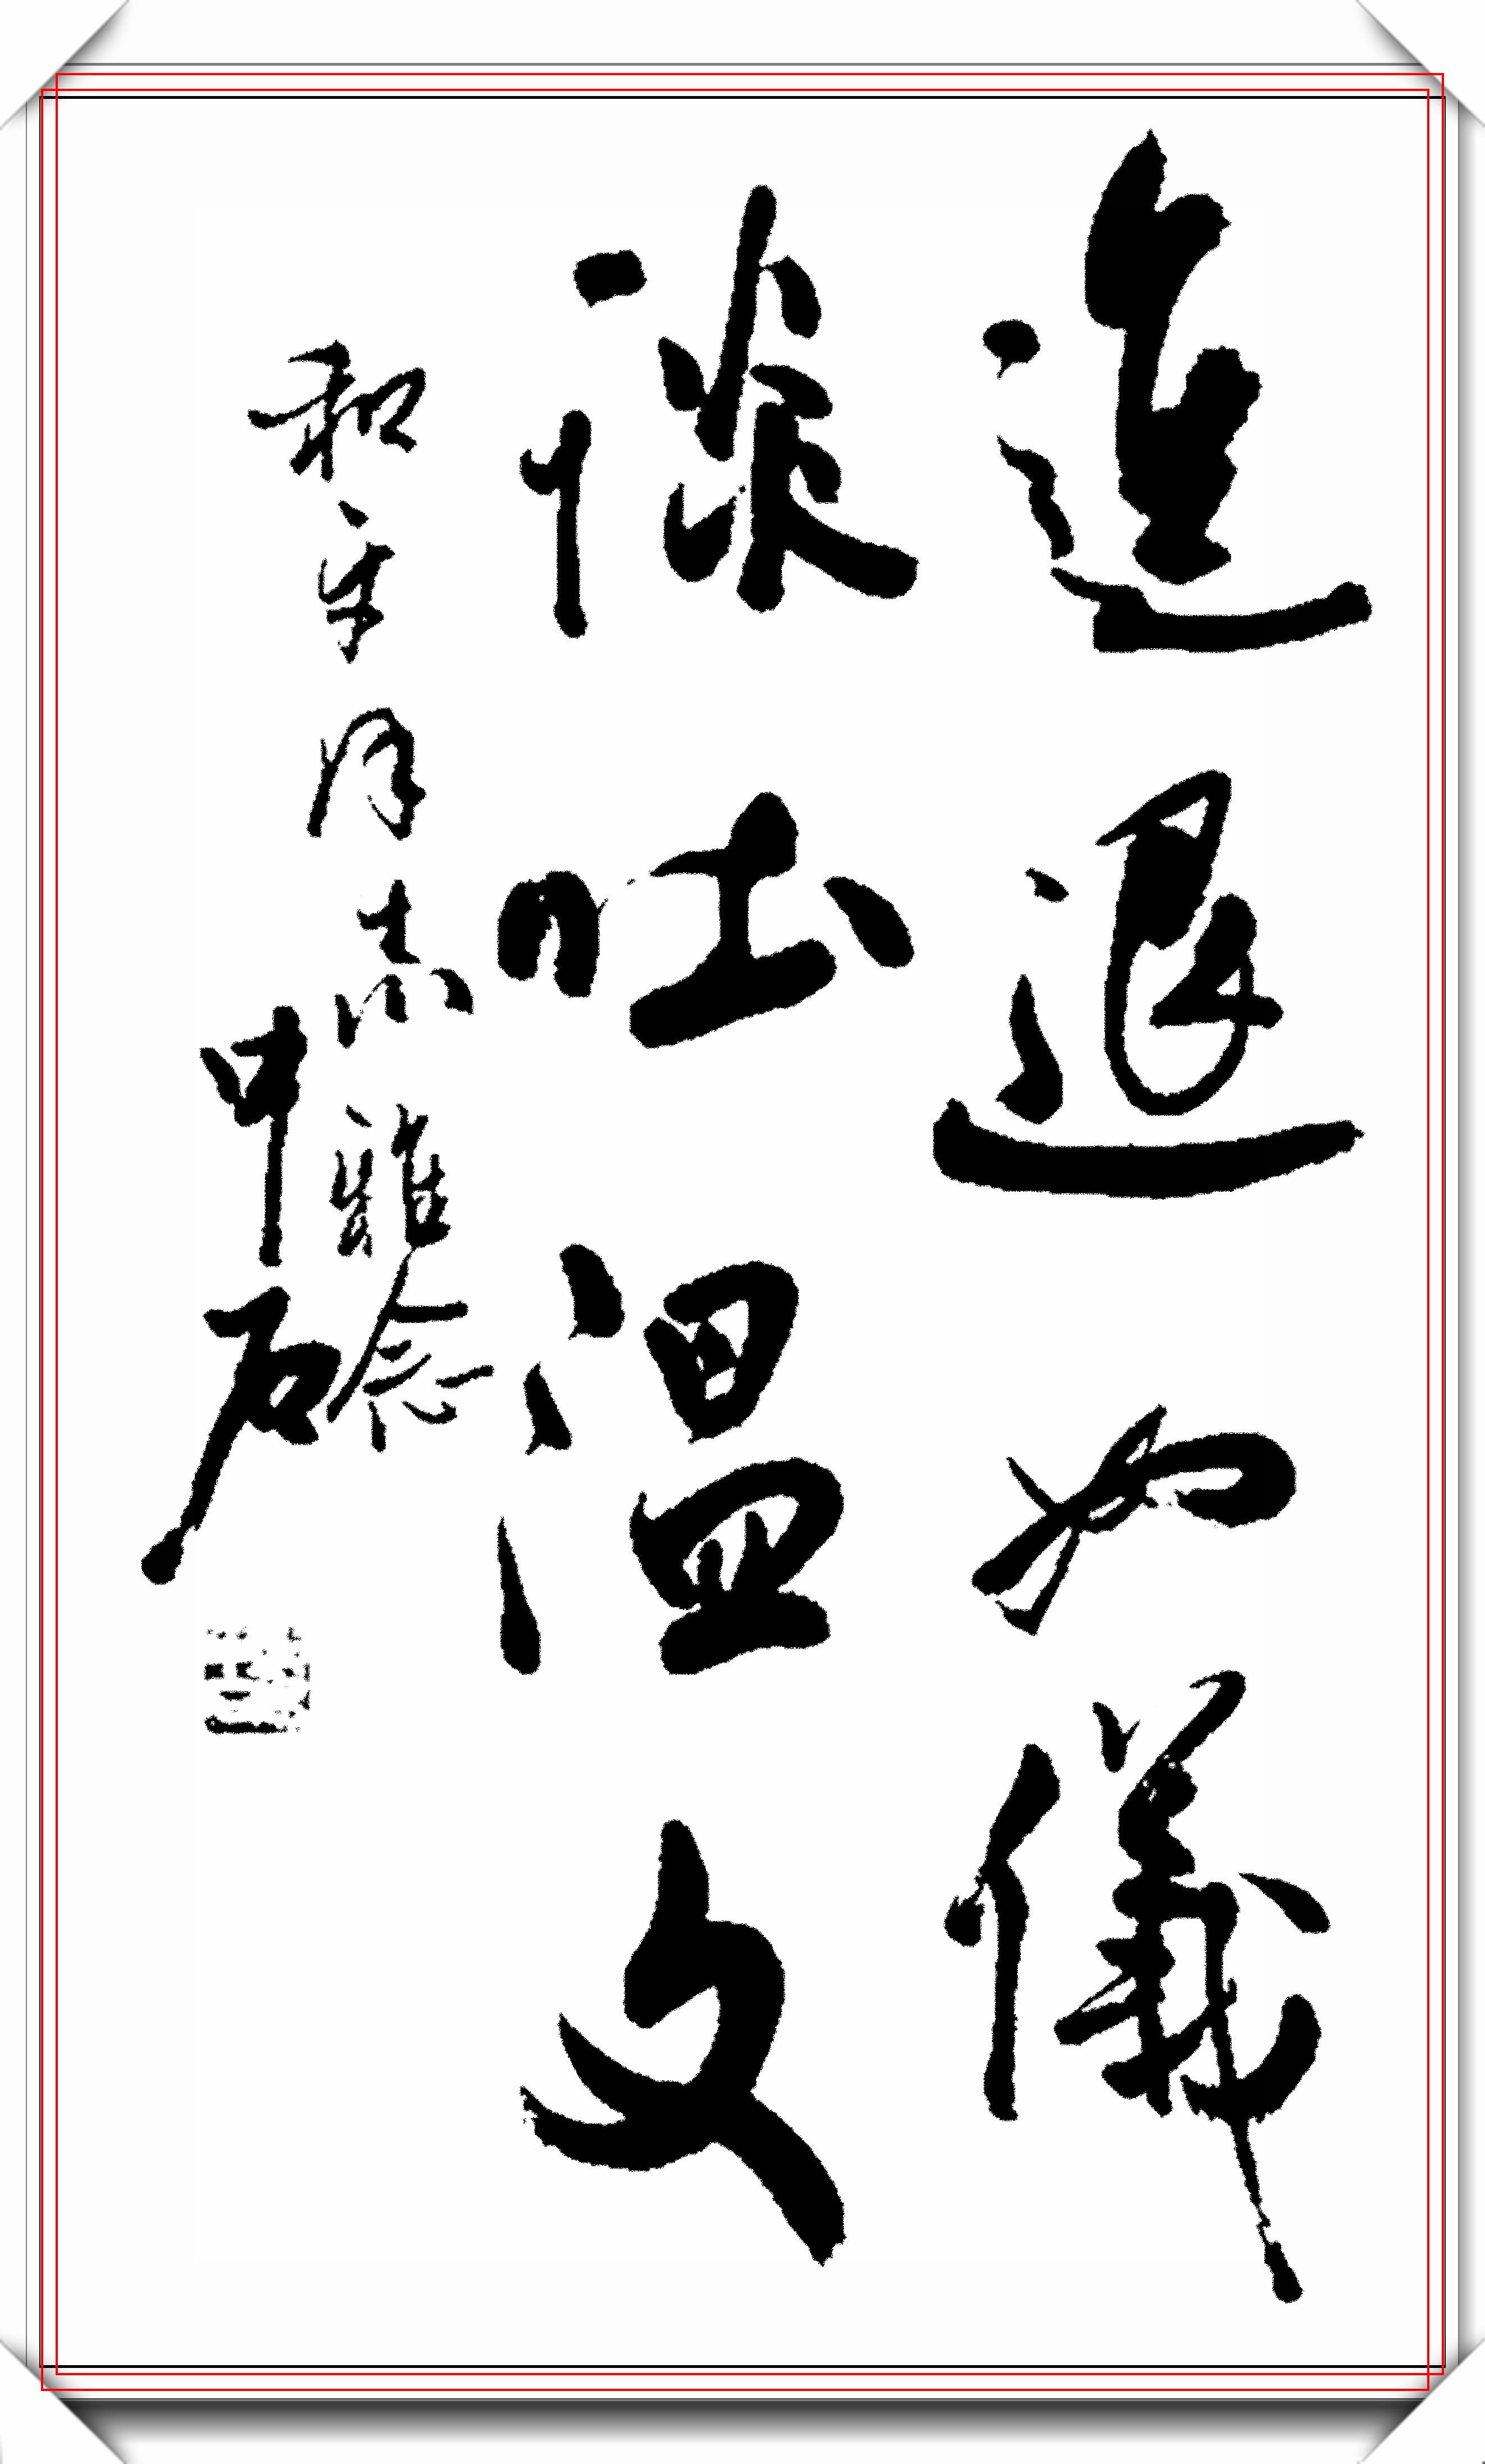 進退如儀
談吐温文
和同志雅念
中石